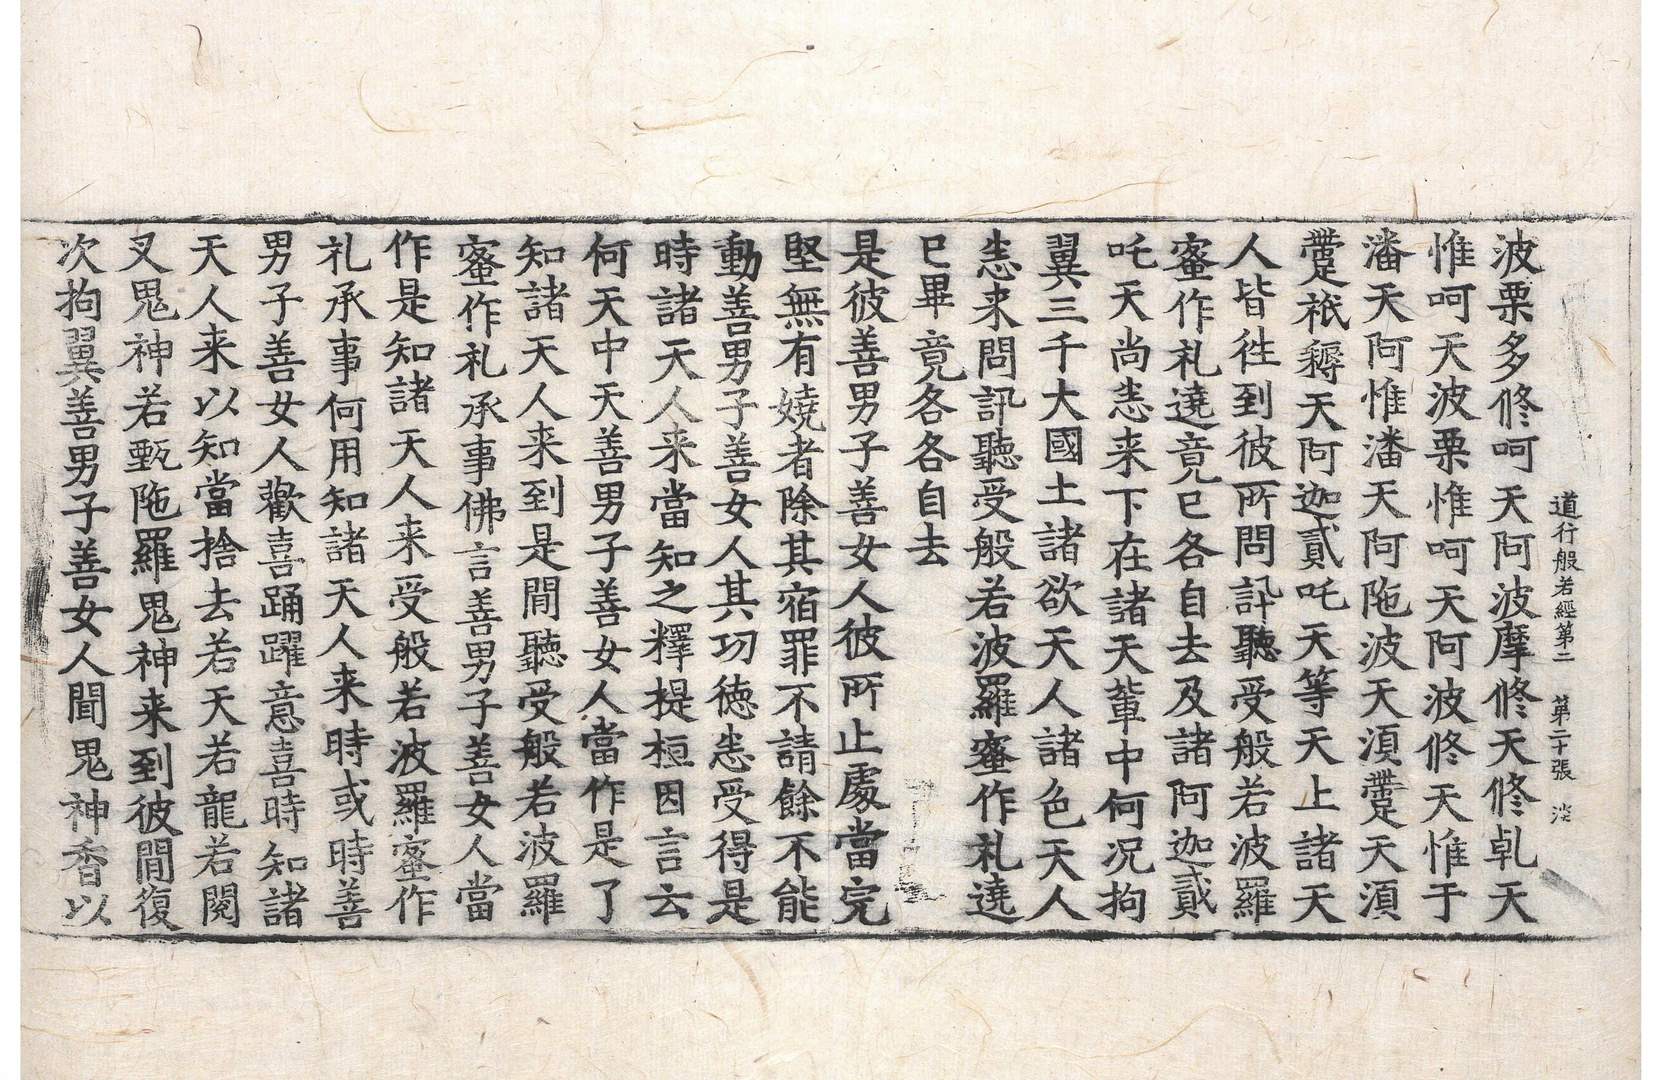 道行般若經第二　第二十張　淡
波栗多修呵天阿波摩修天修乹天
惟呵天波栗惟呵天阿波修天惟于
潘天阿惟潘天阿陁波天湏㲲天湏
㲲祇耨天阿迦貳吒天等天上諸天
人皆徃到彼所問訊聽受般若波羅
蜜作礼遶竟已各自去及諸阿迦貳
吒天尚恚来下在諸天軰中何况拘
翼三千大國土諸欲天人諸色天人
恚来問訊聽受般若波羅蜜作礼遶
已畢竟各各自去
是彼善男子善女人彼所止處當完
堅無有嬈者除其宿罪不請餘不能
動善男子善女人其功徳恚受得是
時諸天人来當知之釋提桓因言云
何天中天善男子善女人當作是了
知諸天人来到是閒聽受般若波羅
蜜作礼承事佛言善男子善女人當
作是知諸天人来受般若波羅蜜作
礼承事何用知諸天人来時或時善
男子善女人歡喜踊躍意喜時知諸
天人来以知當捨去若天若龍若閱
叉鬼神若甄陁羅鬼神来到彼閒復
次拘翼善男子善女人聞鬼神香以